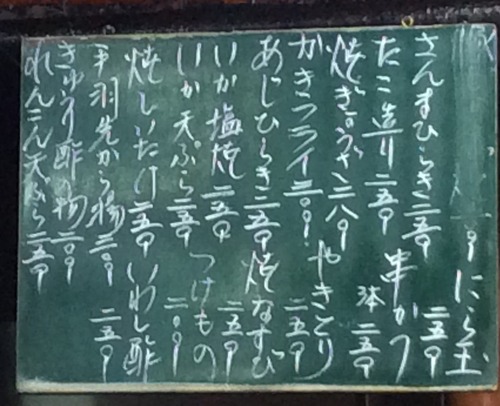 にら玉 二五円
さんまひらき 二五円
たこ造り 二五円
串かつ 二本 二五円
焼ぎょうざ 二八円
かきフライ 三〇円
やきとり 二五円
あじひらき 二五円
焼なすび 二五円
いか塩焼 二五円
いか天ぷら 二五円
つけもの 二〇円
焼しいたけ 二五円
いわし酢 二五円
手羽先から揚 三〇円
きゅうり酢の物 二〇円
れんこん天ぷら 二五円